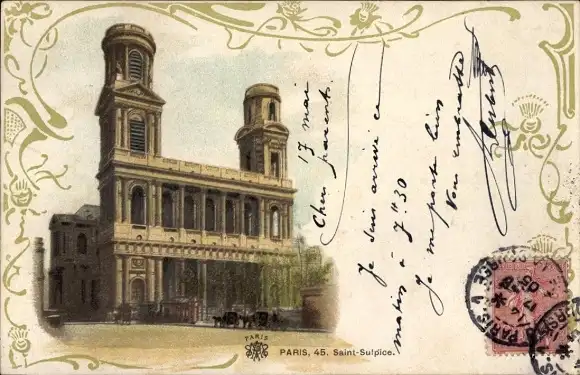 17 mai
Chers parents
Je suis arrivé ce
matin à 7h 30
Je me porte bien
Vous embrasse
PARIS
PARIS, 45. Saint-Sulpice.